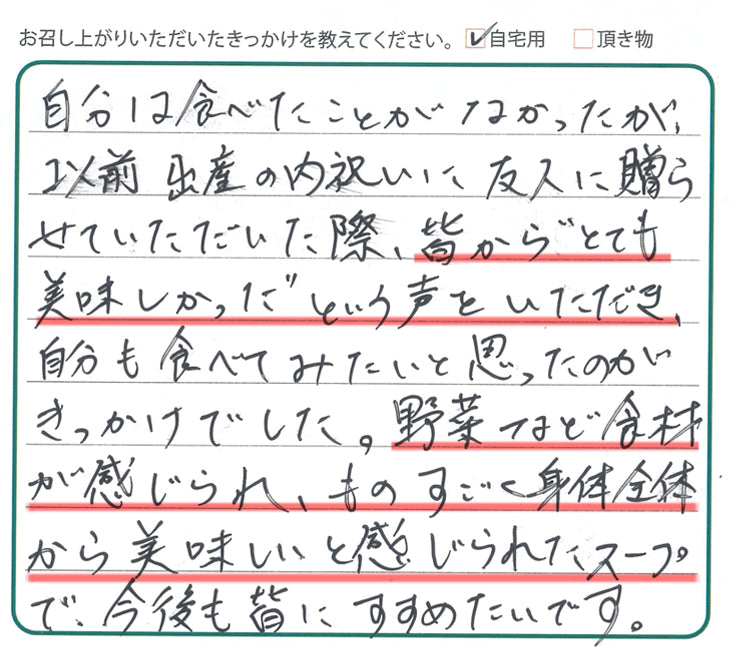 お召し上がりいただいたきっかけを教えてください。 ☑自宅用 □頂き物
自分は食べたことがなかったが、
以前出産の内祝いに友人に贈ら
せていただいた際、皆から"とても
美味しかった"という声をいただき、
自分も食べてみたいと思ったのが
きっかけでした。野菜など食材
が感じられ、ものすごく身体全体
から美味しいと感じられたスープ
で、今後も皆にすすめたいです。